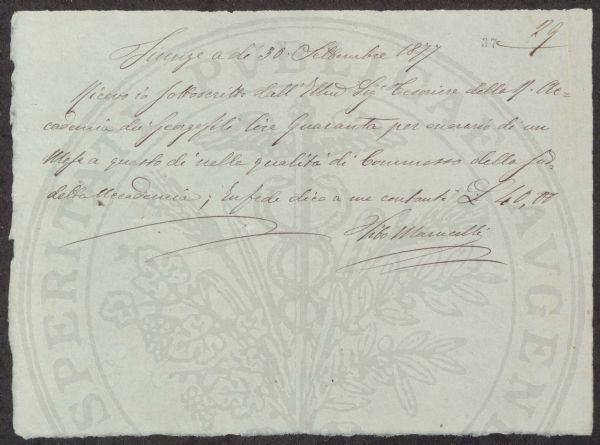 29
37
Firenze a dì 30 Settembre 1877
Ricevo io sottoscritto dall' Illmo Sigr Tesoriere della R. Ac=
cademia dei Georgofili lire Quaranta per onorario di un
Mese a questo dì nella qualità di Commesso della sud=
detta Accademia; In fede dico a me contanti £ 40,00
Vito Marucelli
PROSPERITATI PUBLICAE AUGENDAE